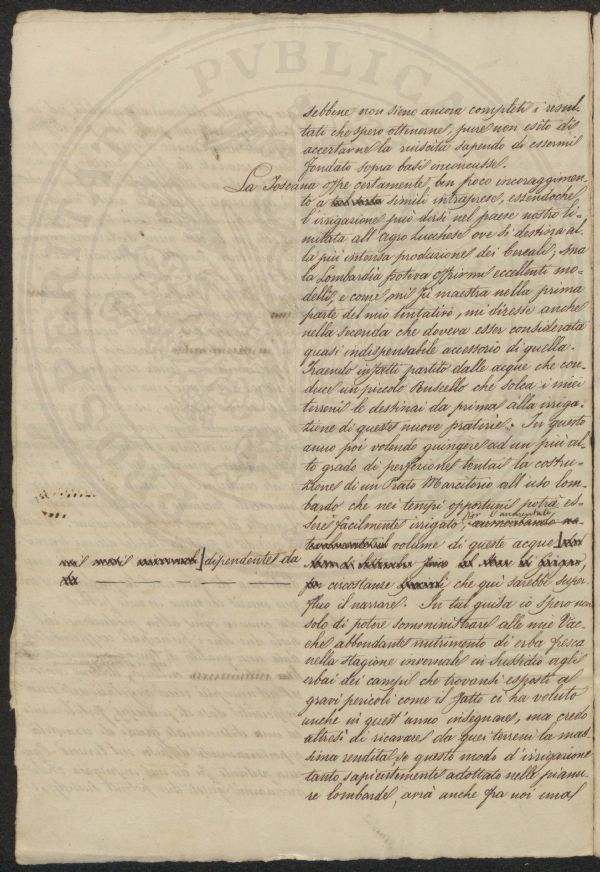 PVBLICA
sebbene non sieno ancora completi i resul-
tati che spero ottenerne, pure non esito di
accertarne la riuscita sapendo di essermi
fondato sopra basi inconcusse.
La Toscana offre certamente ben poco incoraggimen-
to a simili intraprese, essendoche
l'irrigazione può dirsi nel paese nostro li-
mitata all'agro Lucchese ove si destina al-
la più intensa produzione dei Cereali; ma
la Lombardia poteva offrirmi eccellenti mo-
delli, e come mi fu maestra nella prima
parte del mio tentativo, mi diresse anche
nella seconda che doveva esser considerata
quasi indispensabile accessorio di quella.
Traendo infatti partito dalle acque che con-
duce un piccolo Ruscello che solca i miei
terreni le destinai da prima alla irriga-
zione di queste nuove praterie. In questo
anno poi volendo giungere ad un più al-
to grado di perfezione tentai la costru-
zione di un Prato Marcitorio all'uso lom-
bardo che nei tempi opportuni potrà es-
sere facilmente irrigato, per l'aumentato
volume di queste acque
dipendente da
circostanze che qui sarebbe super-
fluo il narrare. In tal guisa io spero non
solo di potere somministrare alle mie Vac-
che abbondante nutrimento di erba fresca
nella stagione invernale in sussidio agli
erbai dei campi che trovansi esposti a
gravi pericoli come il fatto ci ha voluto
anche in quest'anno insegnare, ma credo
altresì di ricavare da quei terreni la mas-
sima rendita se questo modo d'irrigazione
tanto sapientemente adottato nelle pianu-
re lombarde, avrà anche fra noi una